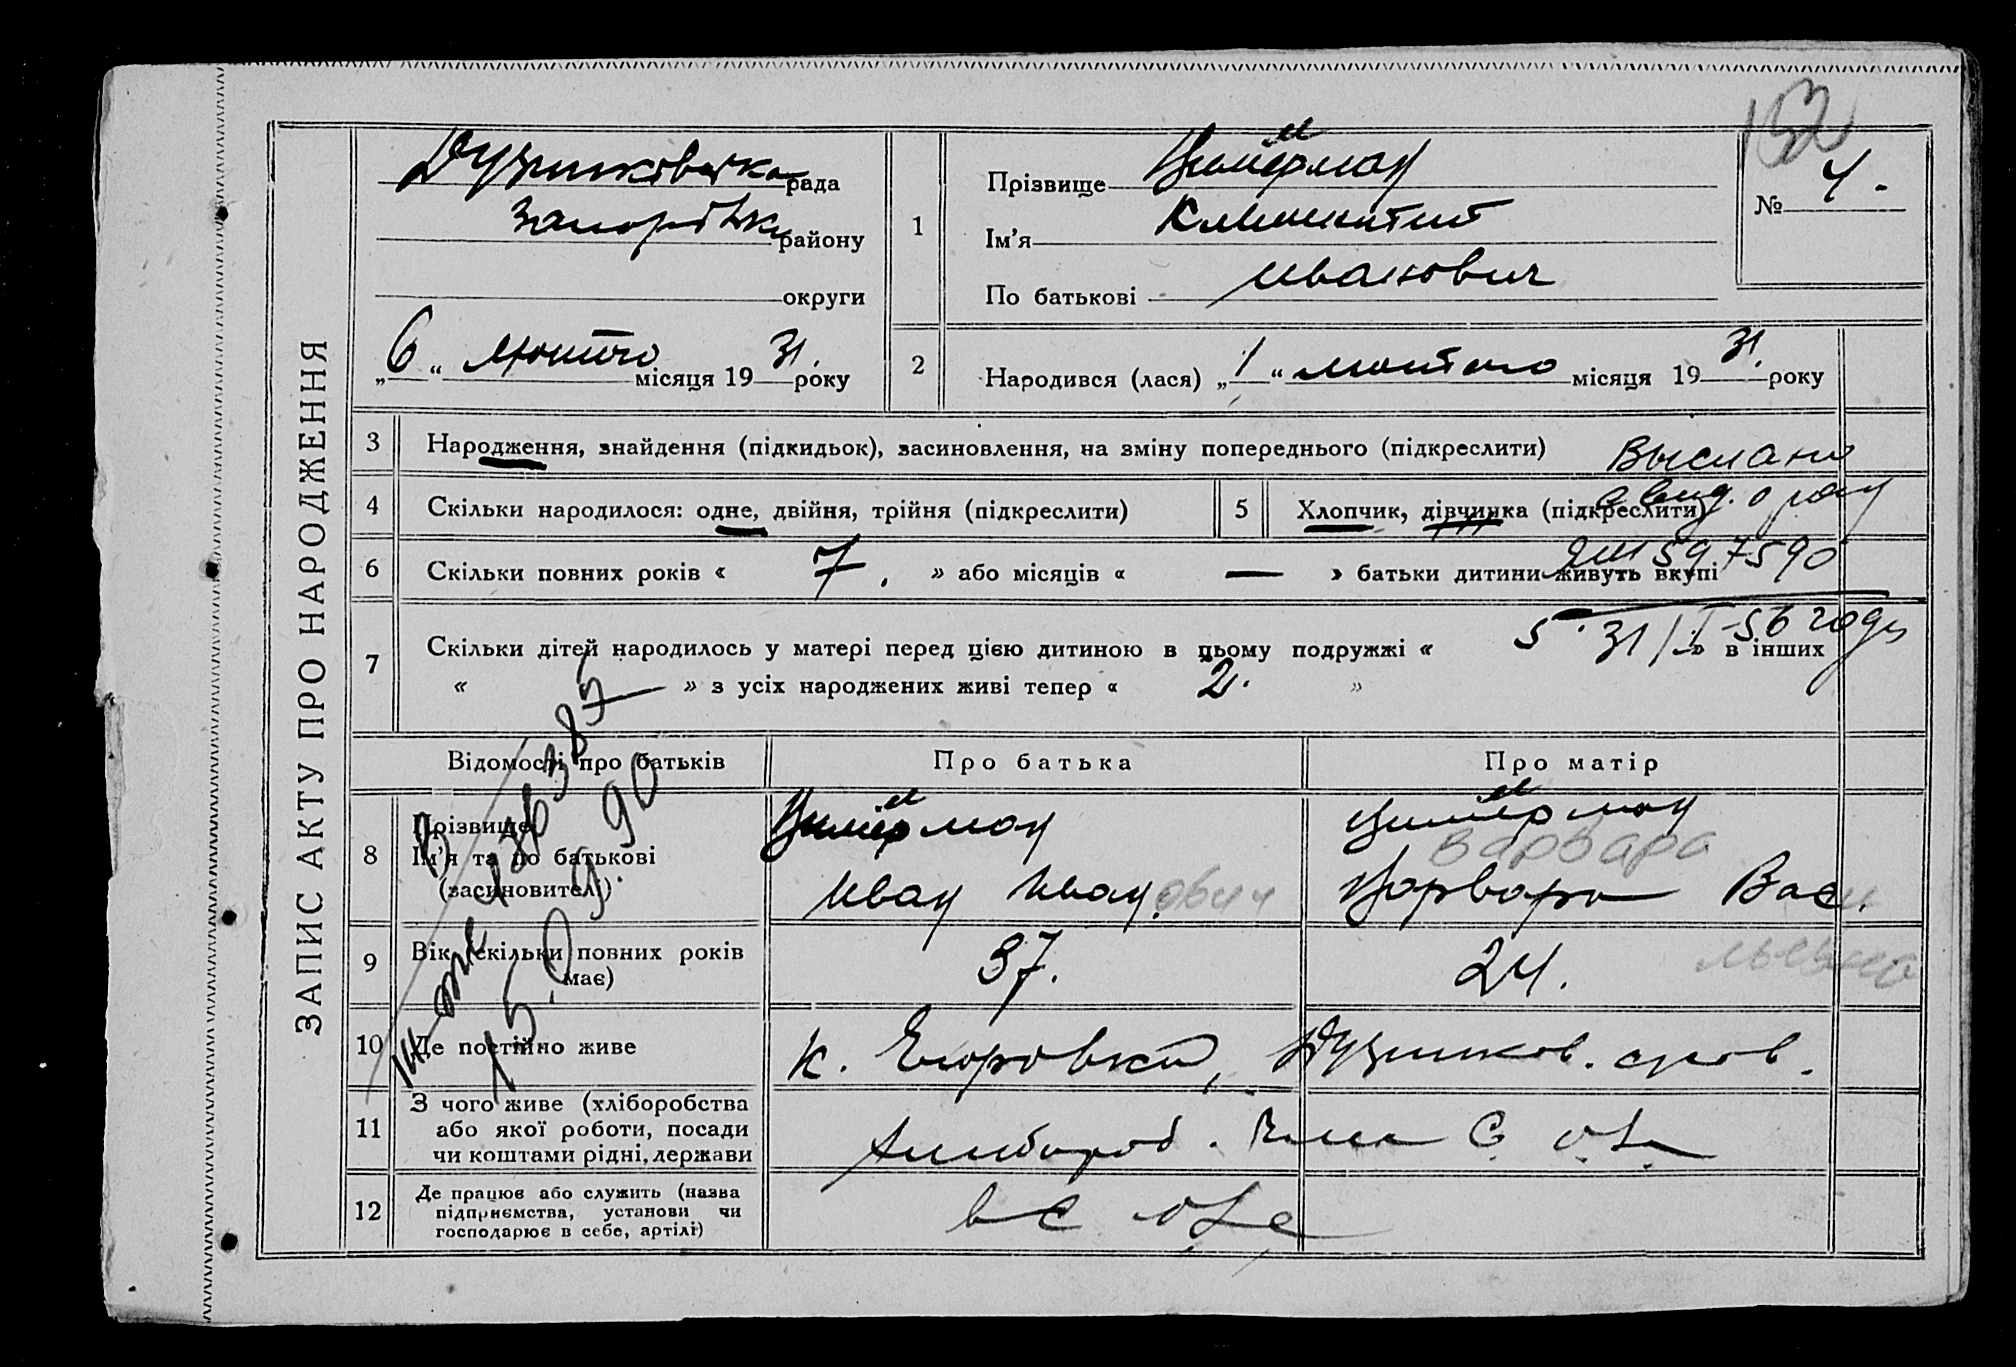 ЗАПИС АКТУ ПРО НАРОДЖЕННЯ
152
рада
району
округи
„6“ лютого місяця 1931. року
1
Прізвище Цимерман
Ім’я Климентий
По батькові Иванович
№ 4.
2
Народився (лася) „1“ лютого місяця 1931. року
3 Народження, знайдення (підкидьок), засиновлення, на зміну попереднього (підкреслити)
4 Скільки народилося: одне, двійня, трійня (підкреслити)
5 Хлопчик, дівчинка (підкреслити)
Выслано
свид. о рож
597590
31/I-56 года
6 Скільки повних років « 7. » або місяців « — » батьки дитини живуть вкупі
7 Скільки дітей народилось у матері перед цією дитиною в цьому подружжі « 5. » в інших
« — » з усіх народжених живі тепер « 2. »
Відомості про батьків
Про батька
Про матір
8 Прізвище
Ім’я та по батькові
(засиновителі)
Цимерман
Иван Иванович
Цимерман
Варвара
Варвара Васильевна
9 Вік (скільки повних років має)
37.
24.
10 Де постійно живе
к. Егоровка,
11 З чого живе (хліборобства
або якої роботи, посади
чи коштами рідні, держави
хлибороб.
12 Де працює або служить (назва
підприємства, установи чи
господарює в себе, артілі)